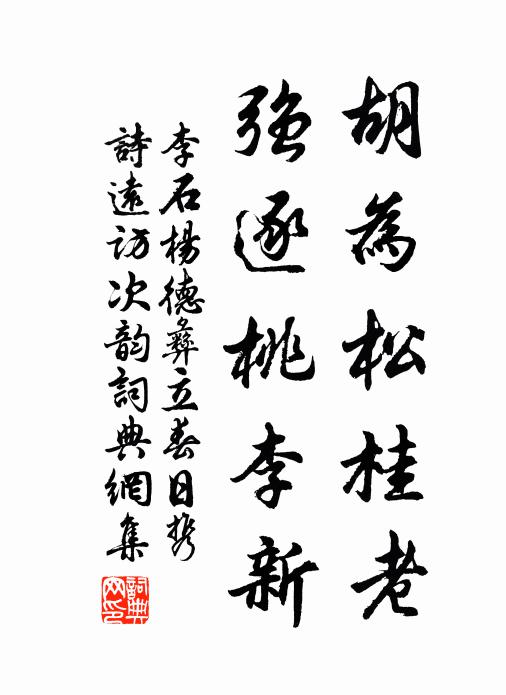 胡為松桂老
強逐桃李新
李石楊德彞立春日携
詩遠訪次韵詞典網集
詞典網印